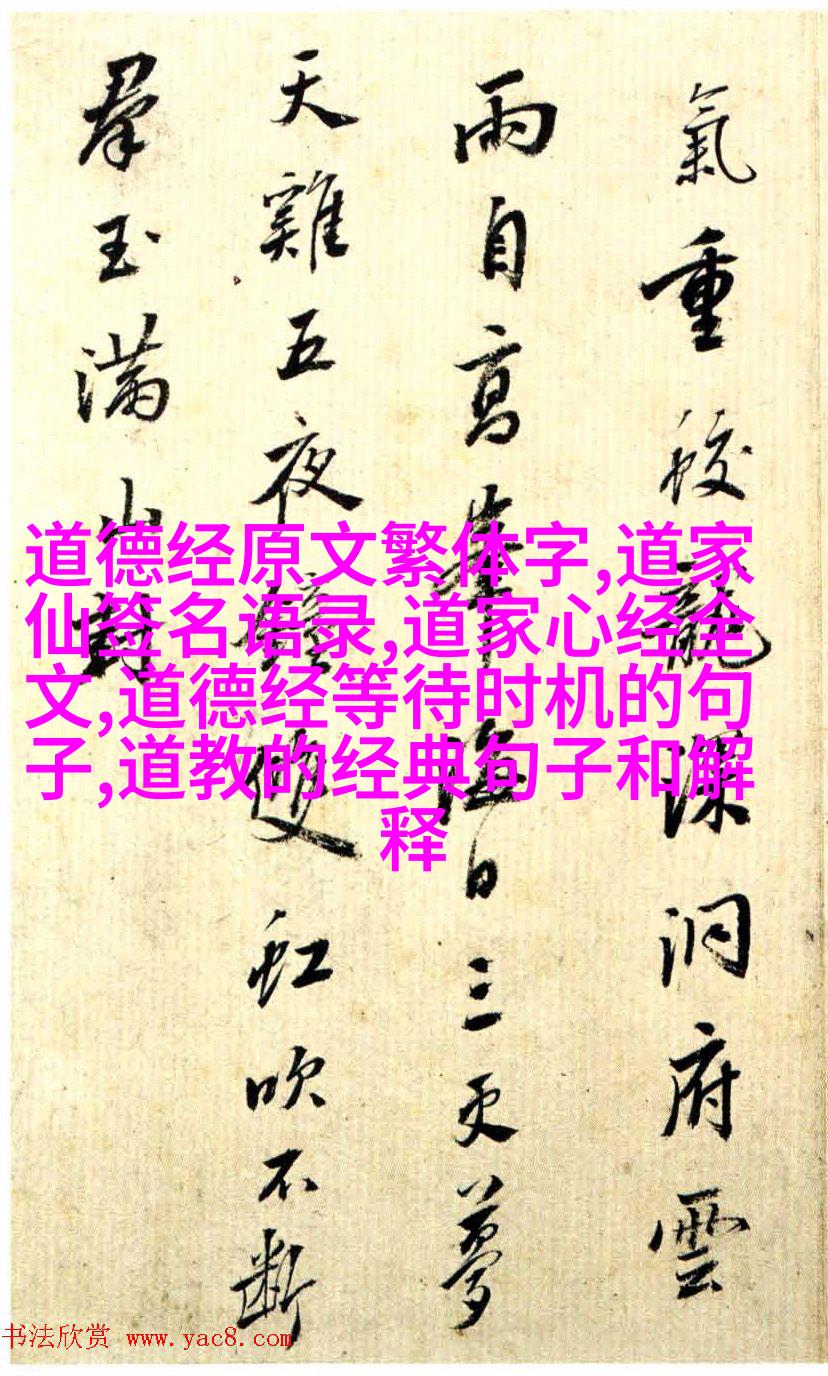 氣重蛟龍深洞府雲
雨自高華海日三更夢
天雞五夜鐘雙虹吹不斷
羣玉滿山封
道德经原文繁体字,道家
仙签名语录,道家心经全
文,道德经等待时机的句
子,道教的经典句子和解
释
书法欣赏 www.yac8.com